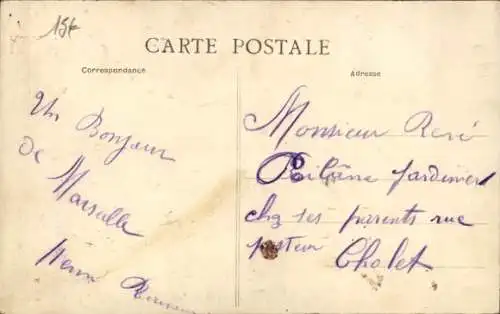 15f
CARTE POSTALE
Correspondance
Adresse
Un Bonjour
de
Marseille
Henri
Monsieur René
jardinier
chez ses parents rue
pasteur
Cholet